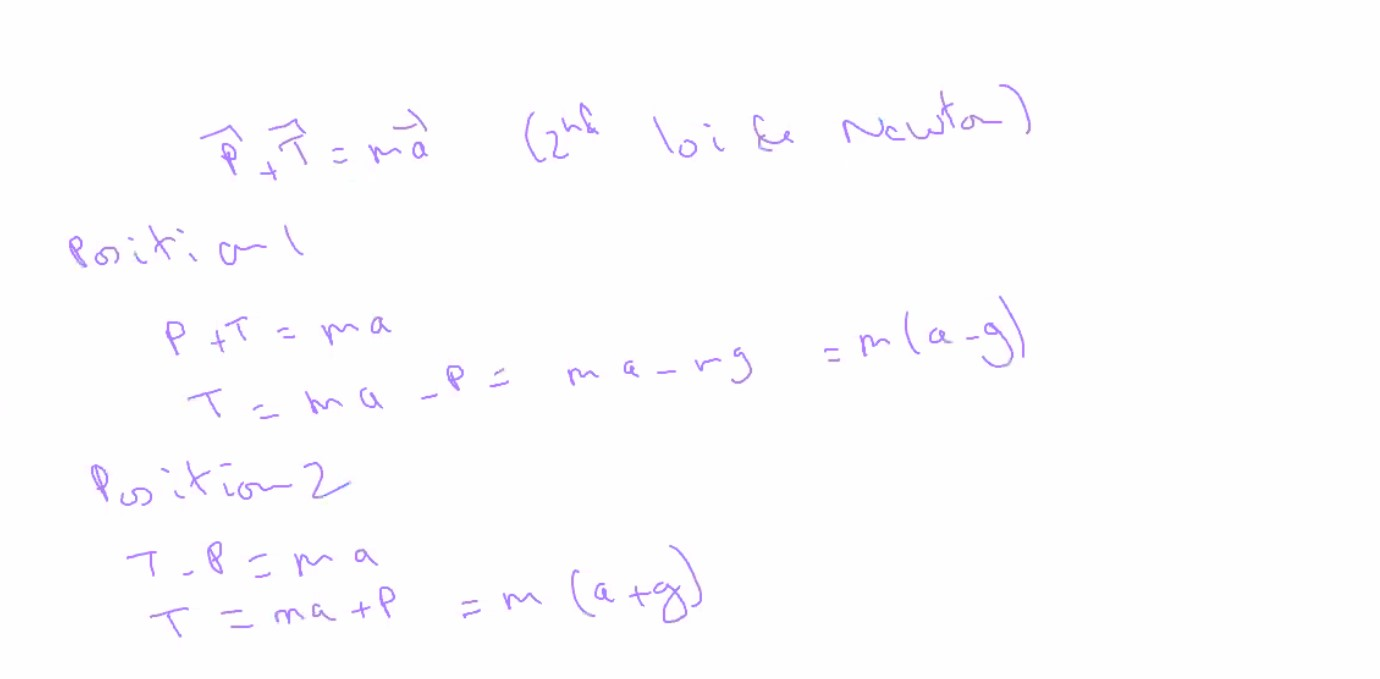 P⃗ + T⃗ = ma⃗ (2nd loi de Newton)
Position 1
P + T = ma
T = ma - P = ma - mg = m(a-g)
Position 2
T - P = ma
T = ma + P = m(a+g)